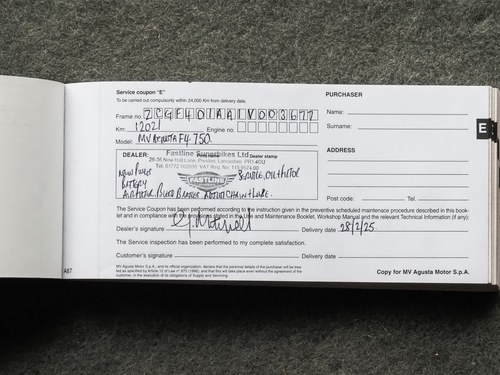 Service coupon "E"
To be carried out compulsorily within 24,000 Km from delivery date
PURCHASER
Frame no. ZCGF401AA1V003677
Name:
Km: 12021 Engine no.
Surname:
E
Model: MV AGUSTA F4 750
ADDRESS
DEALER: Fastline Superbikes Ltd Dealer stamp
New Hall Lane, Preston, Lancashire PR1 4DU
NEW PLUGS
BATTERY
FASTLINE
AIRFILTER BLEED BRAKES ADJUST CHAIN + LUBE.
Post code: Tel.
The Service Coupon has been performed according to the instruction given in the preventive scheduled maintenance procedure described in this book-
let and in compliance with the provisions stated in the Use and Maintenance Booklet, Workshop Manual and the relevant Technical Information (if any)
Dealer's signature Delivery date 28/2/25
The Service inspection has been performed to my complete satisfaction.
Customer's signature Delivery date
MV Agusta Motor S.p.A., and its official organization, declares that the personal details of the purchaser will be trea-
ted as specified by Article 13 of Law n° 675 (1996), and that this will take place even without the agreement of the
customer, in the execution of its obligations of Supply and Servicing.
Copy for MV Agusta Motor S.p.A.